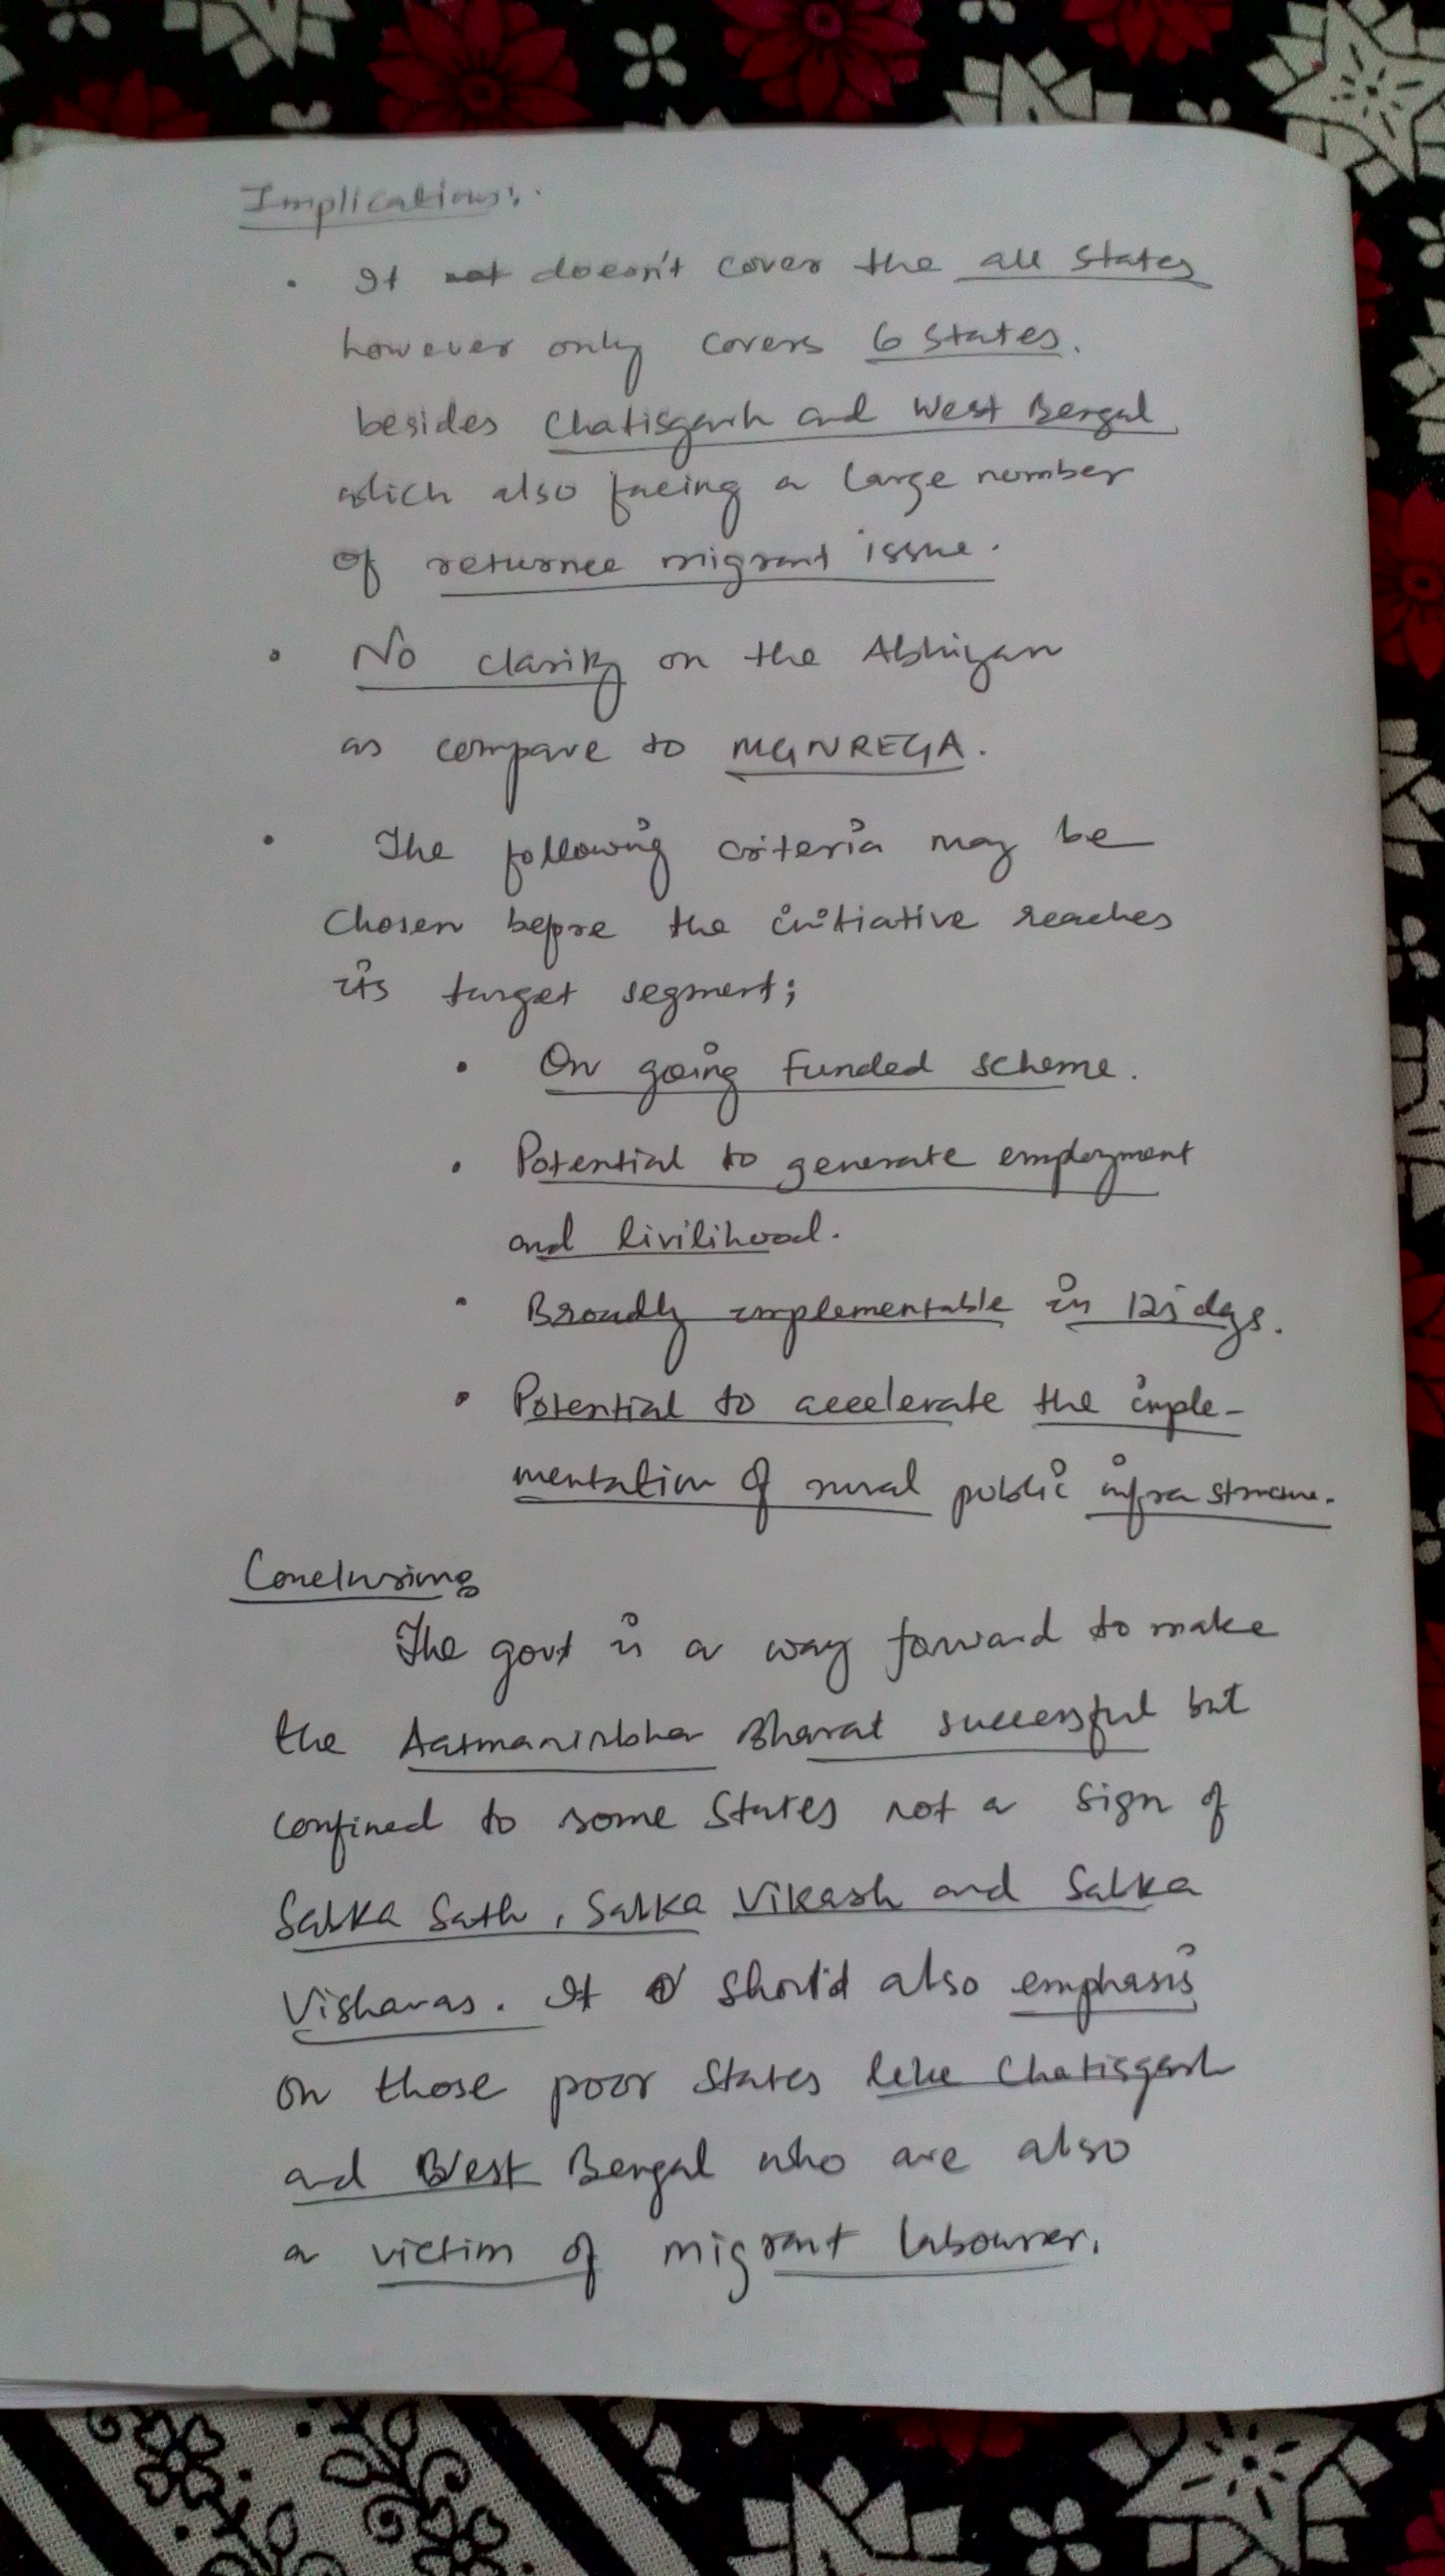 Implications:
• It not doesn't cover the all states
however only covers 6 states.
besides Chatisgarh and West Bengal
which also facing a large number
of returnee migrant issue.
• No clarity on the Abhiyan
as compare to MGNREGA.
• The following criteria may be
chosen before the initiative reaches
its target segment;
• On going funded scheme.
• Potential to generate employment
and livilihood.
• Broadly implementable in 125 days.
• Potential to accelerate the imple-
mentation of rural public infra structure.
Conclusions
The govt is a way forward to make
the Aatmanirbhar Bharat successful but
confined to some states not a sign of
Sabka Sath, Sabka Vikash and Sabka
Vishavas. It should also emphasis
on those poor states like Chatisgarh
and West Bengal who are also
a victim of migrant labourer.